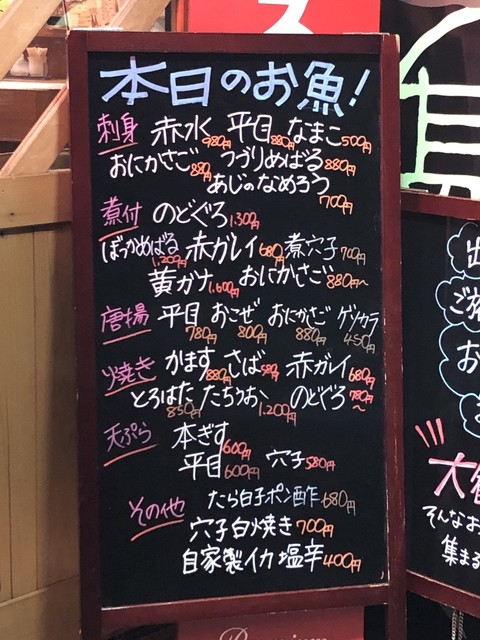 本日のお魚!
刺身 赤水 980円 平目 880円 なまこ 500円
おにかさご 880円 つづりめばる 880円
あじのなめろう 700円
煮付 のどぐろ 1,300円
ぼっかめばる 1,200円 赤ガレイ 680円 煮穴子 700円
黄ガナ 1,600円 おにかさご 880円~
唐揚 平目 780円 おこぜ 800円 おにかさご 880円 ゲソカラ 450円
焼き かます 880円 さば 580円 赤ガレイ 680円
とろはた 850円 たちうお、1,200円 のどぐろ 780円~
天ぷら 本ぎす 600円
平目 600円 穴子 580円
その他 たら白子ポン酢 680円
穴子白焼き 700円
自家製イカ塩辛 400円
ご
お
大
そんなお
集まる